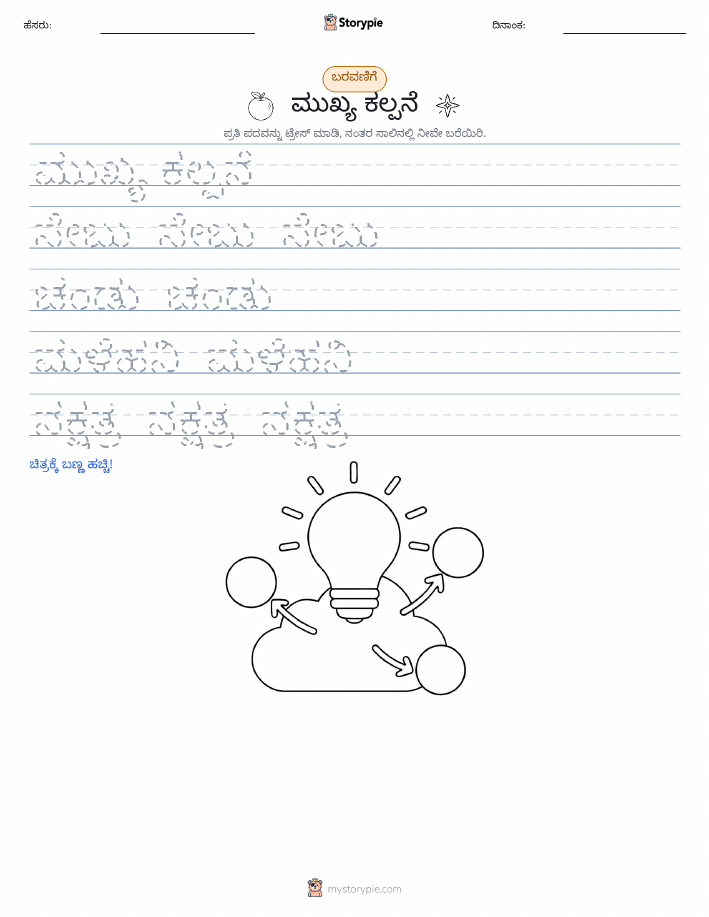 ಹೆಸರು: Storypie ದಿನಾಂಕ:
ಬರವಣಿಗೆ
ಮುಖ್ಯ ಕಲ್ಪನೆ
ಪ್ರತಿ ಪದವನ್ನು ಟ್ರೇಸ್ ಮಾಡಿ, ನಂತರ ಸಾಲಿನಲ್ಲಿ ನೀವೇ ಬರೆಯಿರಿ.
ಮುಖ್ಯ ಕಲ್ಪನೆ
ಸೇಬು ಸೇಬು ಸೇಬು
ಚೆಂಡು ಚೆಂಡು
ಮಳೆಹನಿ ಮಳೆಹನಿ
ನಕ್ಷತ್ರ ನಕ್ಷತ್ರ ನಕ್ಷತ್ರ
ಚಿತ್ರಕ್ಕೆ ಬಣ್ಣ ಹಚ್ಚಿ!
mystorypie.com